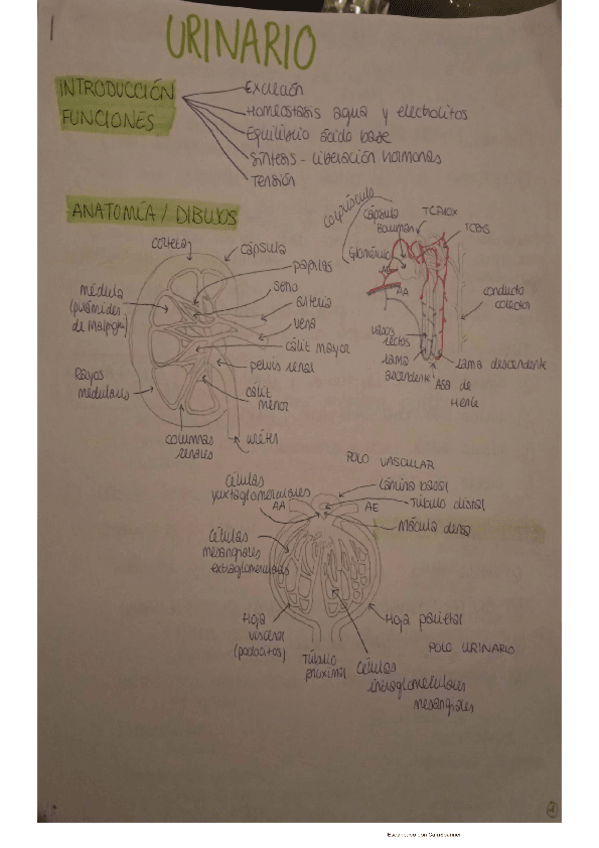 URINARIO
INTRODUCCIÓN
FUNCIONES
Excreción
Homeostasis agua y electrolitos
Equilibrio ácido base
Síntesis - liberación hormonas
Tensión
ANATOMÍA / DIBUJOS
corteza
cápsula
papilas
seno
arteria
vena
cáliz mayor
pelvis renal
cáliz
menor
uréter
médula
(pirámides
de Malpigi)
Rayos
medulares
columnas
renales
corpúsculo
cápsula
Bowman
TCPROX
TCDIS
Glomérulo
AE
AA
conducto
colector
vasos
rectos
rama
ascendente
rama descendente
Asa de
Henle
POLO VASCULAR
células
yuxtaglomerulares
AA
AE
Lámina basal
Túbulo distal
Mácula densa
células
mesangiales
extraglomerulares
Hoja
visceral
(podocitos)
Túbulo
proximal
células
intraglomerulares
mesangiales
Hoja parietal
POLO URINARIO